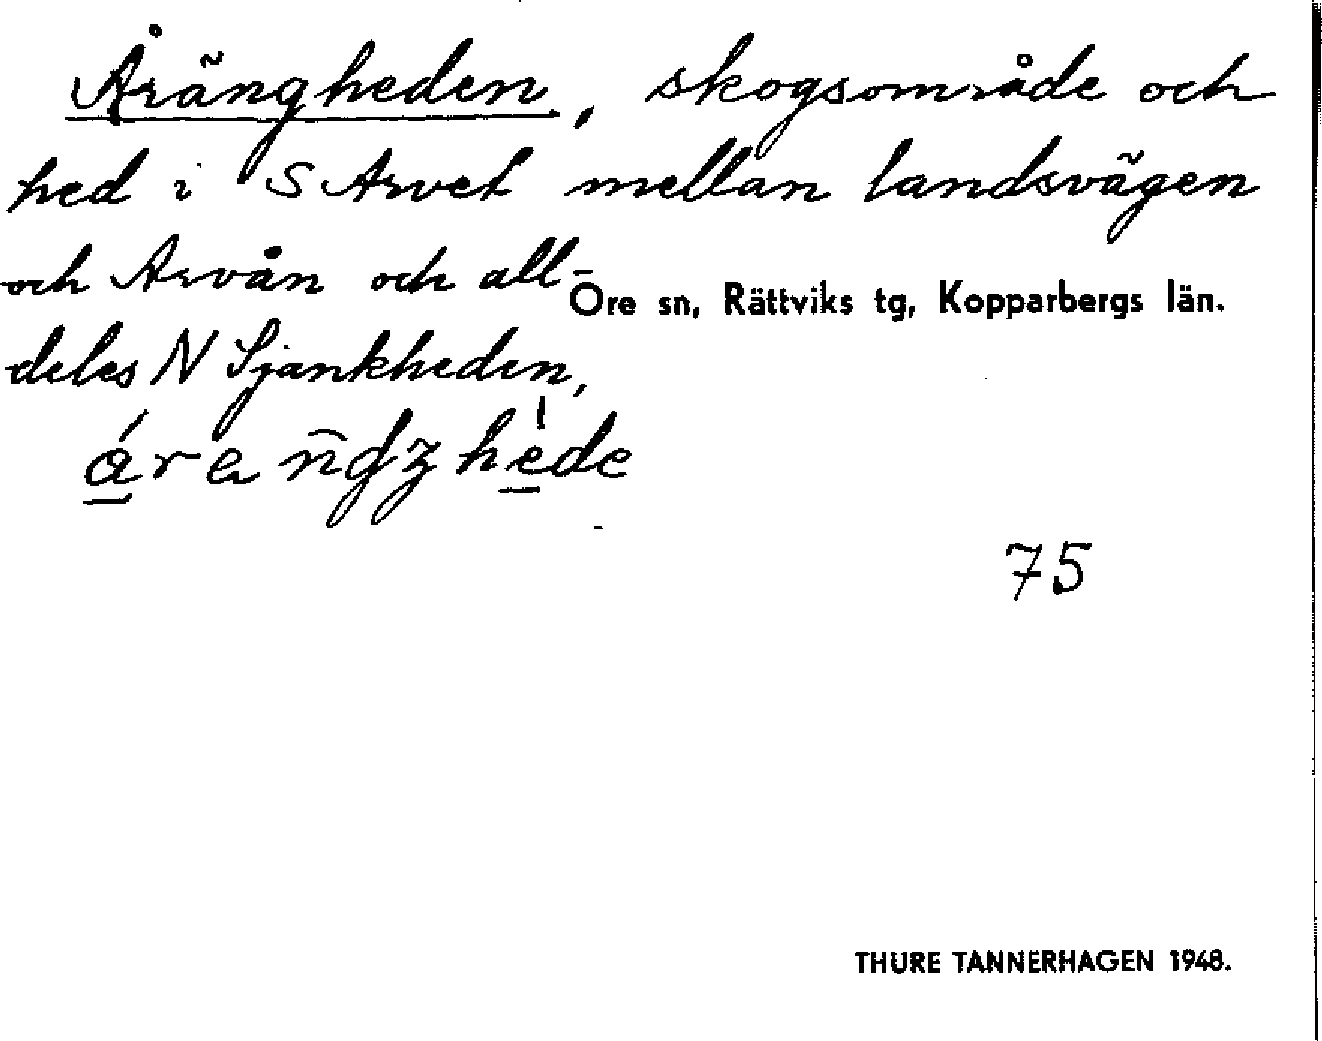 Årängheden, skogsområde och
hed i S Arvet mellan landsvägen
och Arvån och all-
Ore sn, Rättviks tg, Kopparbergs län.
deles N Sjankheden,
75
THURE TANNERHAGEN 1948.